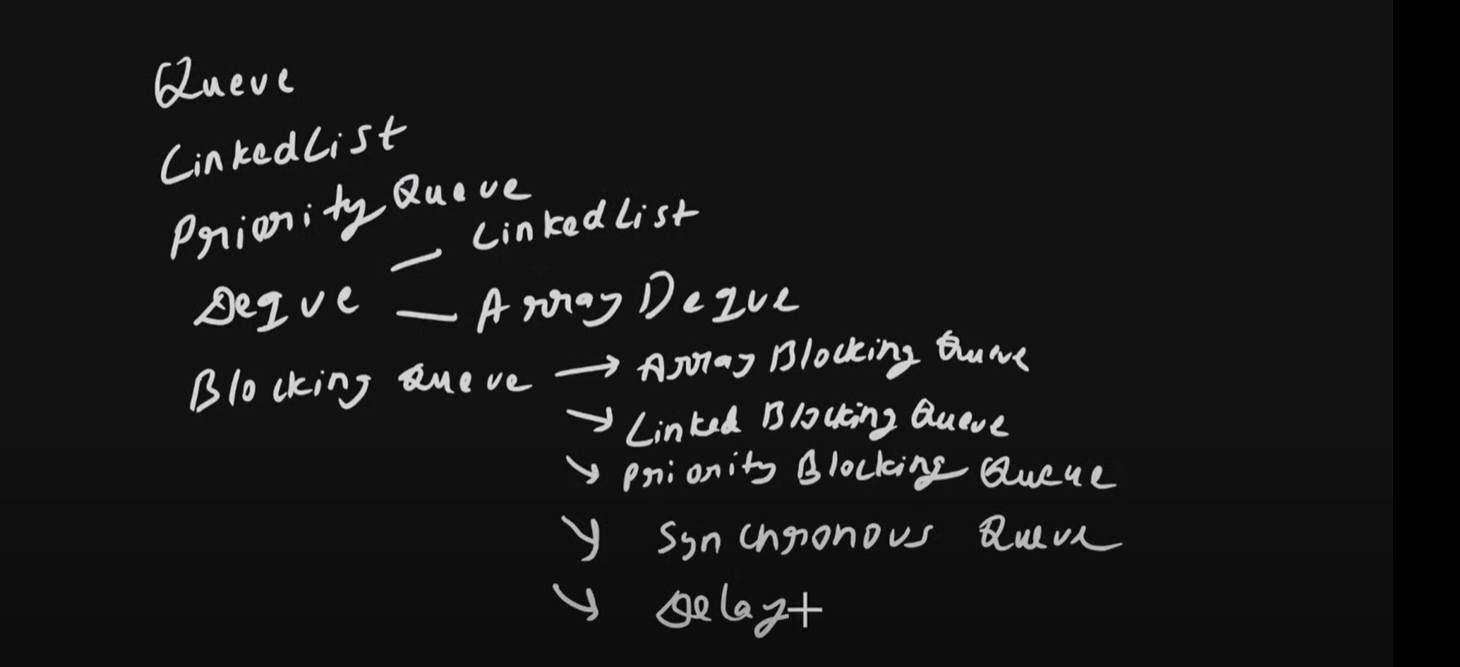 Queue
LinkedList
PriorityQueue
Deque — LinkedList
— ArrayDeque
Blocking Queue → Array Blocking Queue
→ Linked Blocking Queue
→ Priority Blocking Queue
→ Synchronous Queue
→ Delay